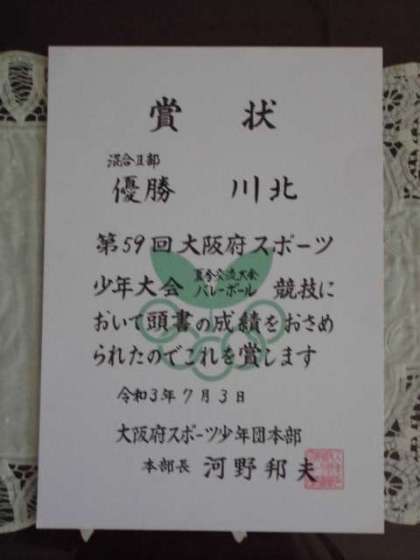 賞 状
混合Ⅱ部
優勝 川北
第59回大阪府スポーツ
少年大会 夏季交流大会 バレーボール 競技に
おいて頭書の成績をおさめ
られたのでこれを賞します
令和3年7月3日
大阪府スポーツ少年団本部
本部長 河野邦夫